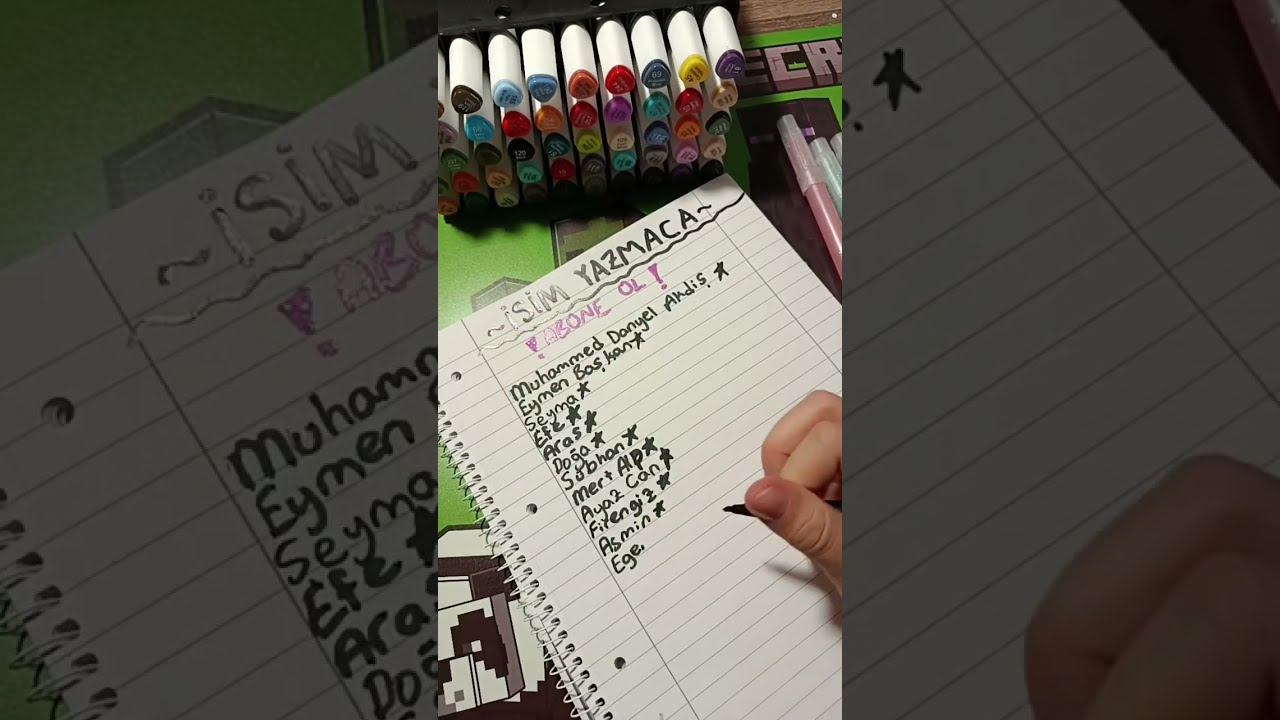 ~İSİM YAZMACA~
!ABONE OL!
Muhammed Danyel Akdis. ★
Eymen Başkan ★
Seyma ★
Efe ★
Aras ★
Doğa ★
Sübhan ★
Mert Alp ★
Ayaz Can ★
Firengiz ★
Asmin ★
Ege.